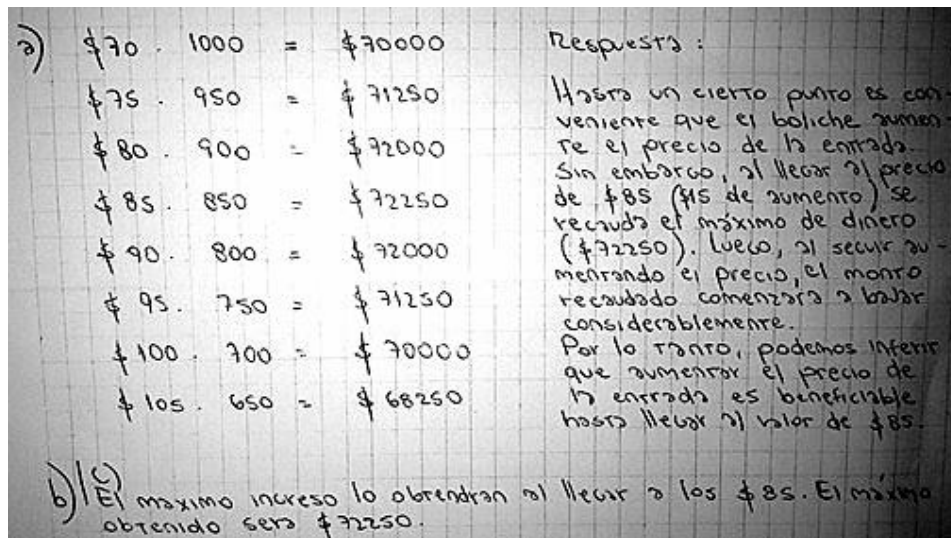 a) $70 . 1000 = $70000
$75 . 950 = $71250
$80 . 900 = $72000
$85 . 850 = $72250
$90 . 800 = $72000
$95 . 750 = $71250
$100 . 700 = $70000
$105 . 650 = $68250
Respuesta :
Hasta un cierto punto es con-
veniente que el boliche aumen-
te el precio de la entrada.
Sin embargo, al llegar al precio
de $85 ($15 de aumento) se
recauda el máximo de dinero
($72250). Luego, al seguir au-
mentando el precio, el monto
recaudado comenzara a bajar
considerablemente.
Por lo tanto, podemos inferir
que aumentar el precio de
la entrada es beneficiable
hasta llegar al valor de $85.
b) / c)
El maximo ingreso lo obtendran al llegar a los $85. El máximo
obtenido sera $72250.